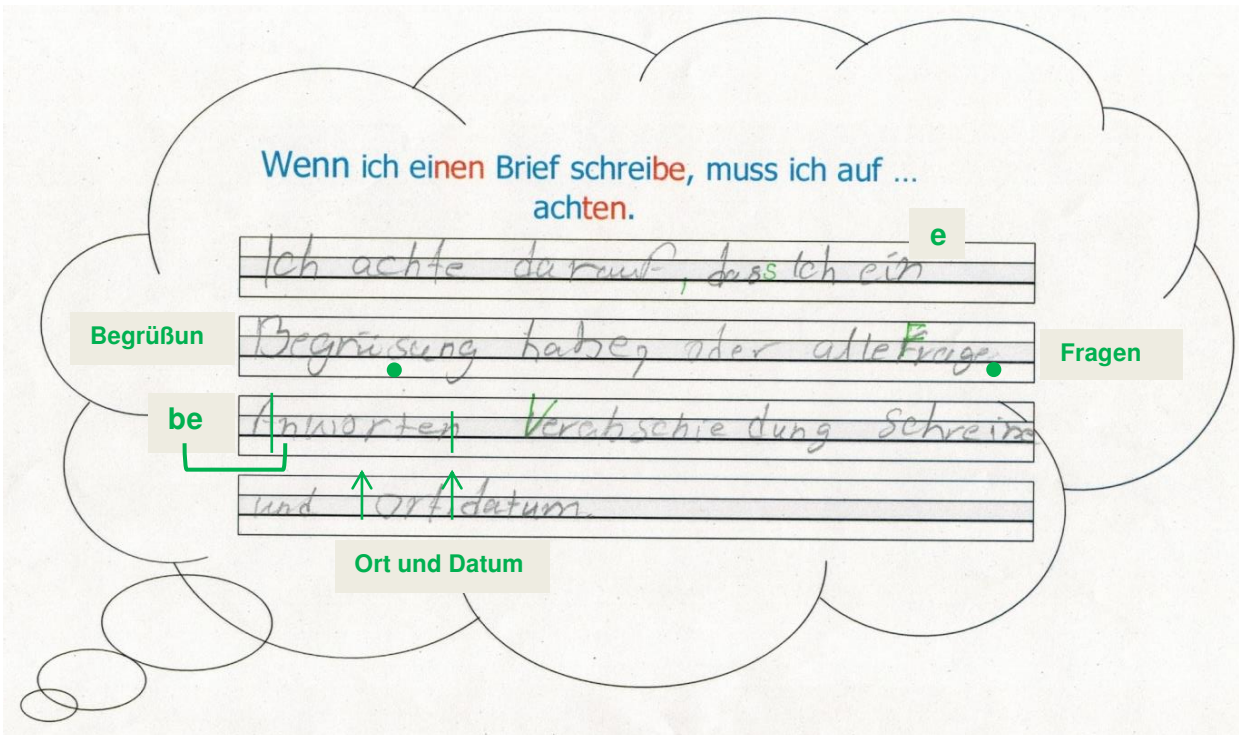 Wenn ich einen Brief schreibe, muss ich auf ...
achten.
e
Ich achte darauf, dass Ich ein
Begrüßun
Begrüsung habe, oder alle Frage
Fragen
be
Anworten Verabschiedung schreibe
und Ort datum.
Ort und Datum